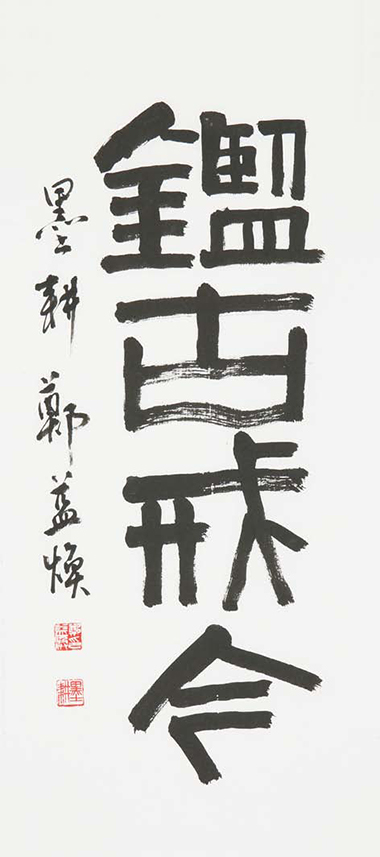 鑑古戒今
墨耕 鄭益煥